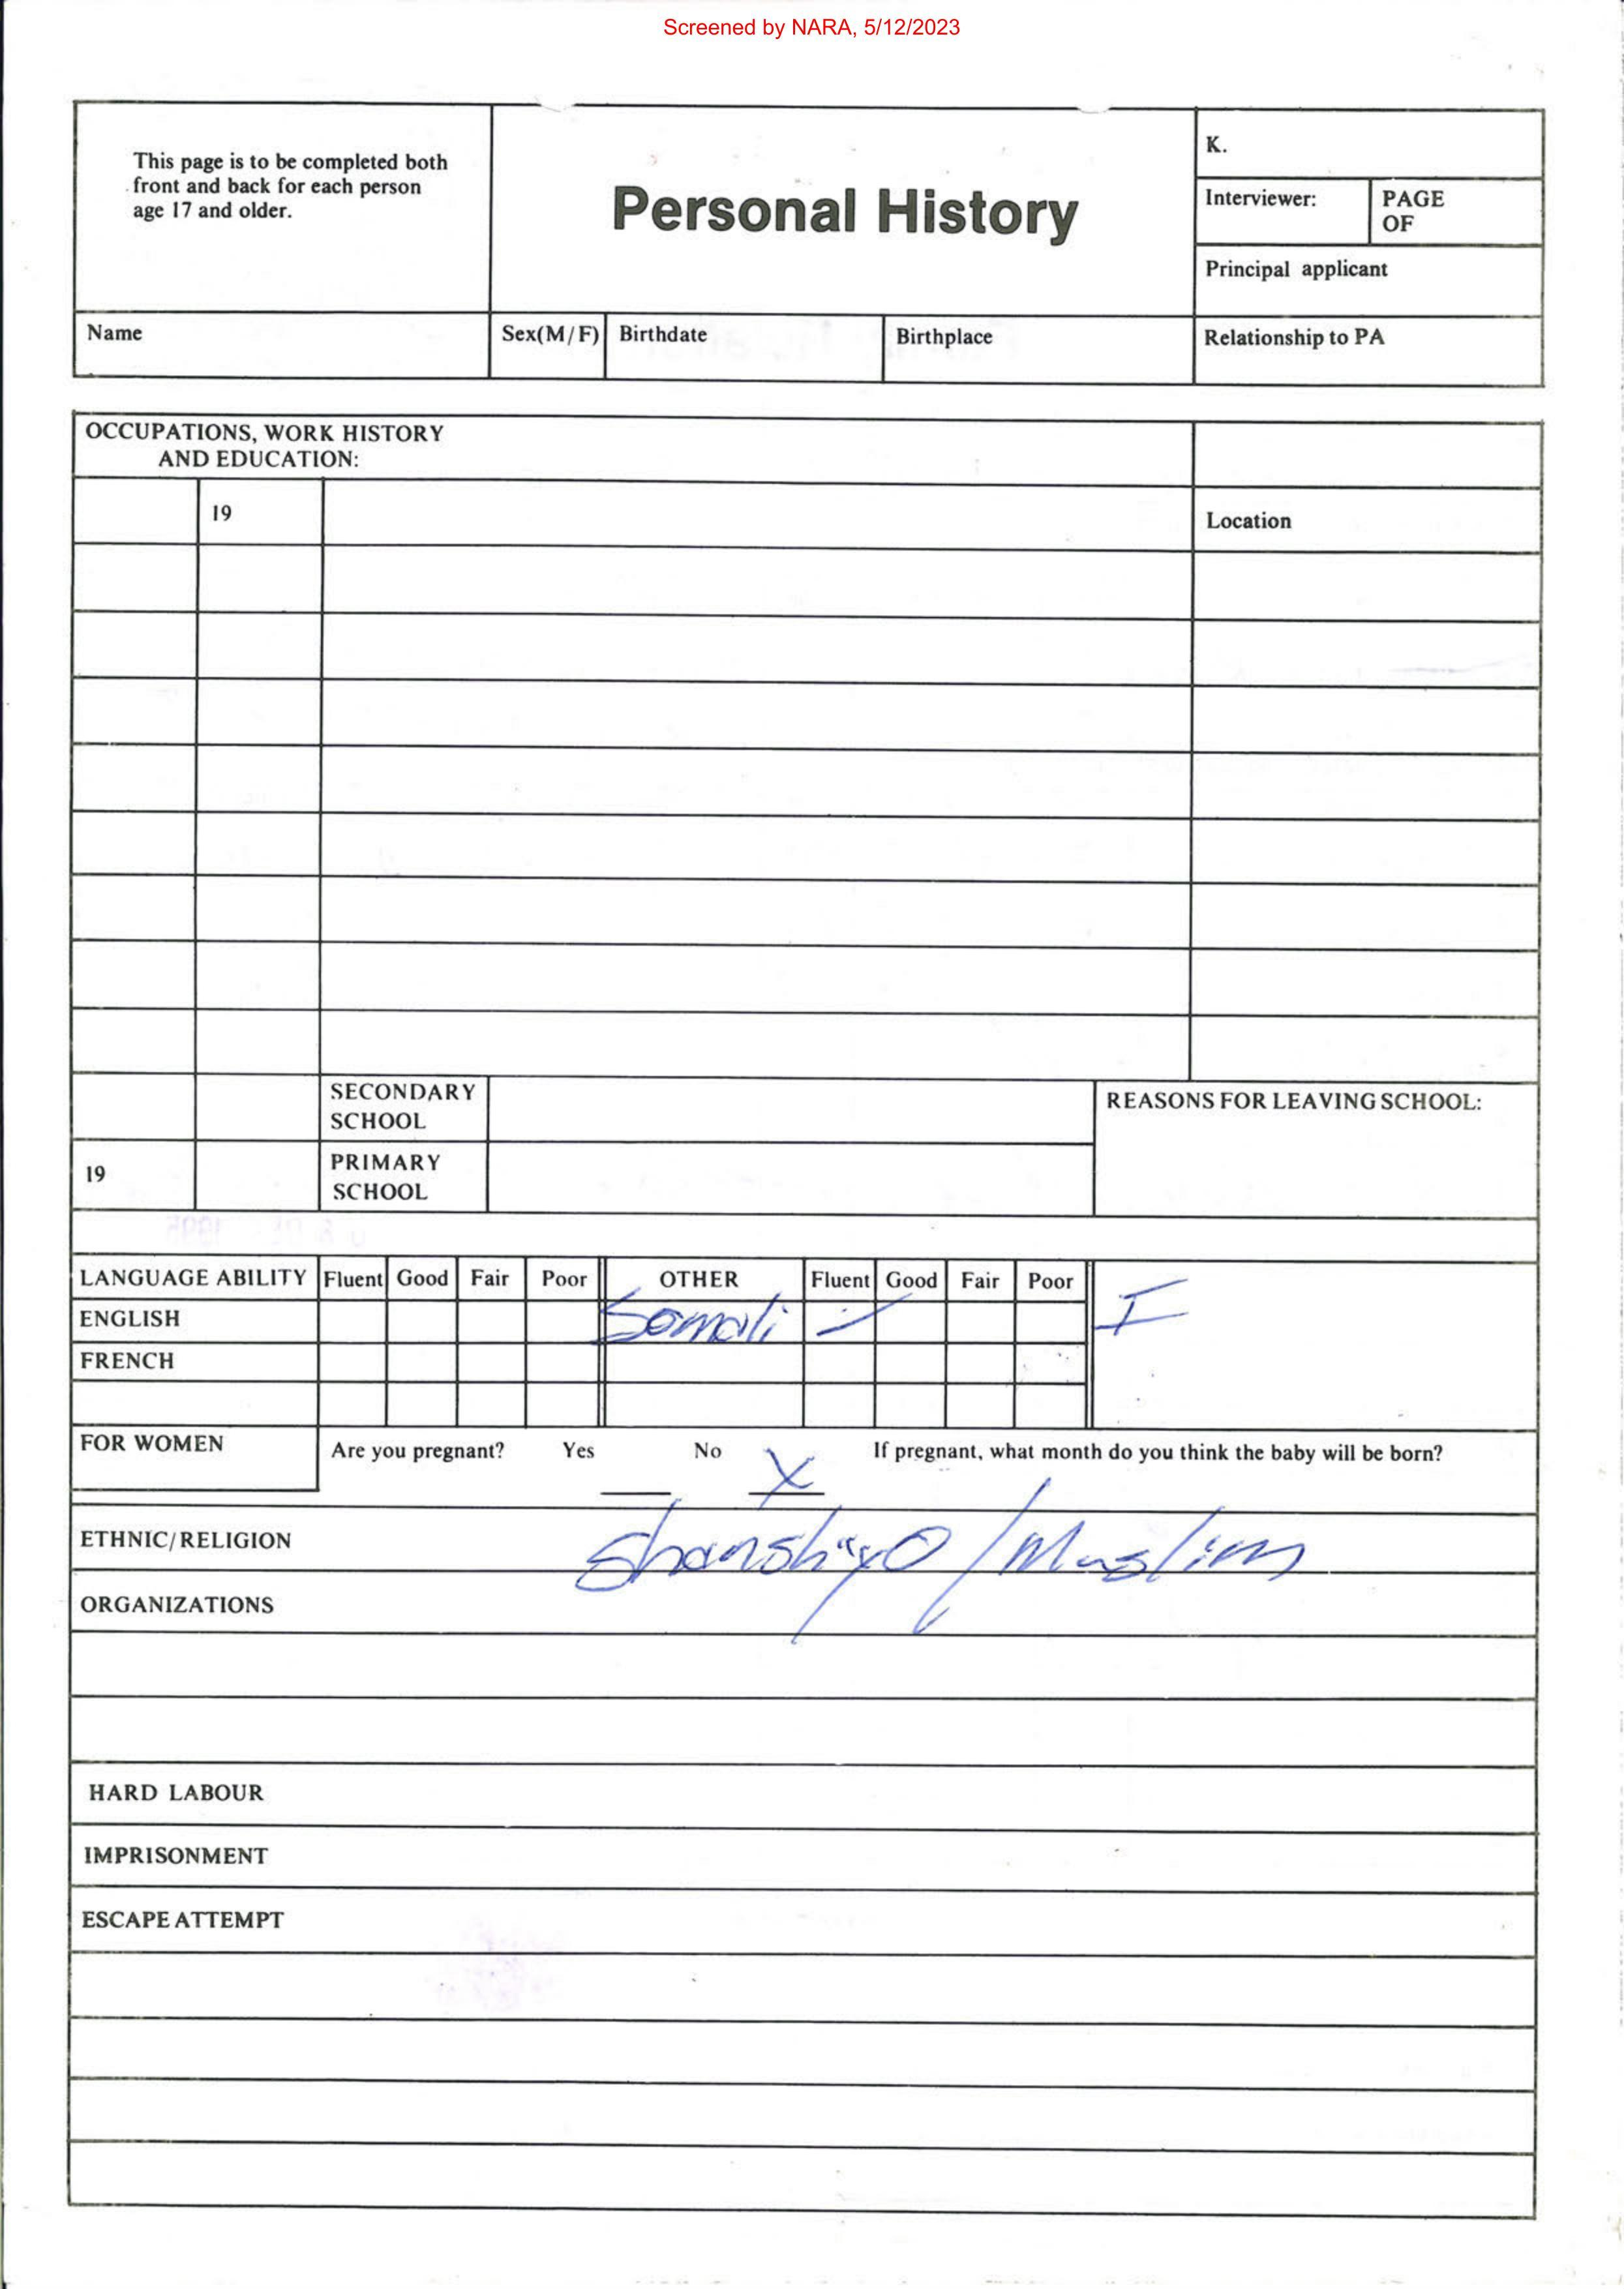 Screened by NARA, 5/12/2023
This page is to be completed both
front and back for each person
age 17 and older.
Personal History
K.
Interviewer:
PAGE
OF
Principal applicant
Name
Sex(M/F)
Birthdate
Birthplace
Relationship to PA
OCCUPATIONS, WORK HISTORY
AND EDUCATION:
19
Location
SECONDARY
SCHOOL
REASONS FOR LEAVING SCHOOL:
19
PRIMARY
SCHOOL
LANGUAGE ABILITY Fluent Good Fair Poor OTHER Fluent Good Fair Poor
ENGLISH Somali I
FRENCH
FOR WOMEN Are you pregnant? Yes No X If pregnant, what month do you think the baby will be born?
ETHNIC/RELIGION /Muslim
ORGANIZATIONS
HARD LABOUR
IMPRISONMENT
ESCAPE ATTEMPT